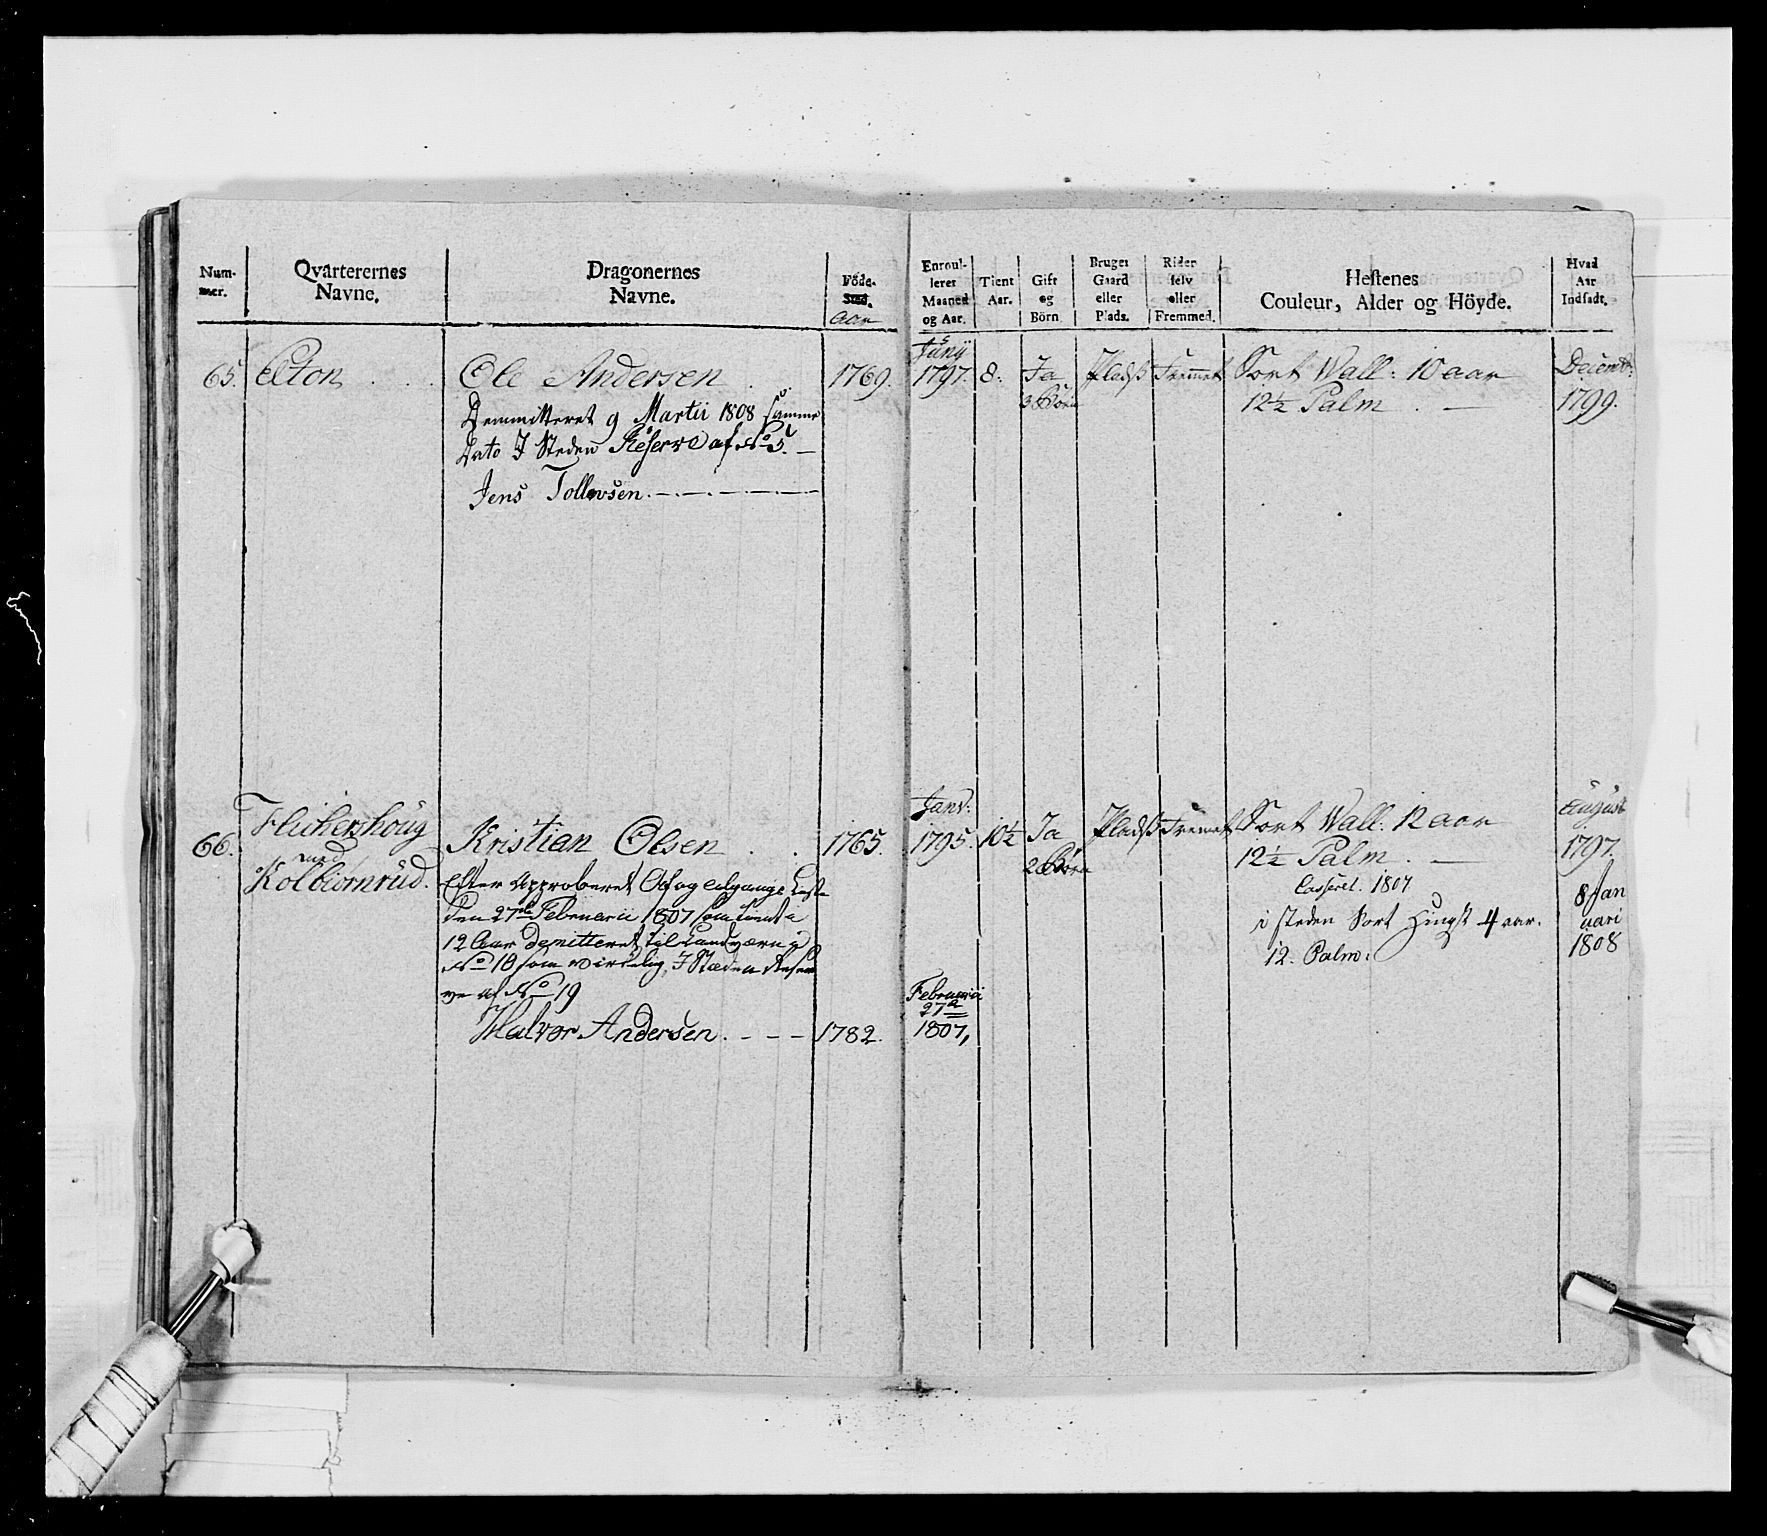 Num-
mer.
Qvarterernes
Navne.
Dragonernes
Navne.
Föde-
Sted.
Aar
Enroul-
leret
Maaned
og Aar.
Tient
Aar.
Gift
og
Börn.
Bruger
Gaard
eller
Plads.
Rider
selv
eller
Fremmed.
Hestenes
Couleur, Alder og Höyde.
Hvad
Aar
Indsadt.
65. Elton
Ole Andersen
1769.
Junÿ
1797.
8.
Ja
3 Börn
Pladß
Fremet
Sort Wall: 10 aar
12½ Palm
Decembr:
1799.
Demmitteret 9 Martii 1808 samme
Dato I Steden Reserve af No 5.
Jens Tollevsen
66.
med
Kolbiørnrüd.
Kristian Olsen
1765.
Janv:
1795.
10½
Ja
2 Börn
Pladß
Fremet
Sort Wall: 12 aar
12½ Palm
August
1797.
Casseret. 1807
i steden Sort Hingst 4 aar.
12. Palm:
8 Jan
uari
1808
Efter Approberet Af og Liste
den 27de Februarii 1807 som tient
12 Aar demitteret til Landværn
No 18 som virkelig, I Stæden Reser
ve af No 19
Halvor Andersen
1782.
Februarii
27de
1807,